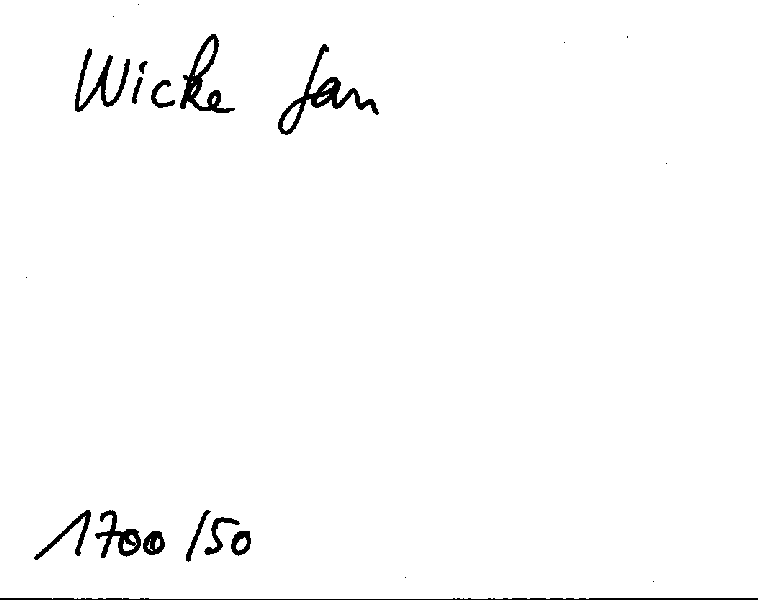 Wicke Jan
1700/50